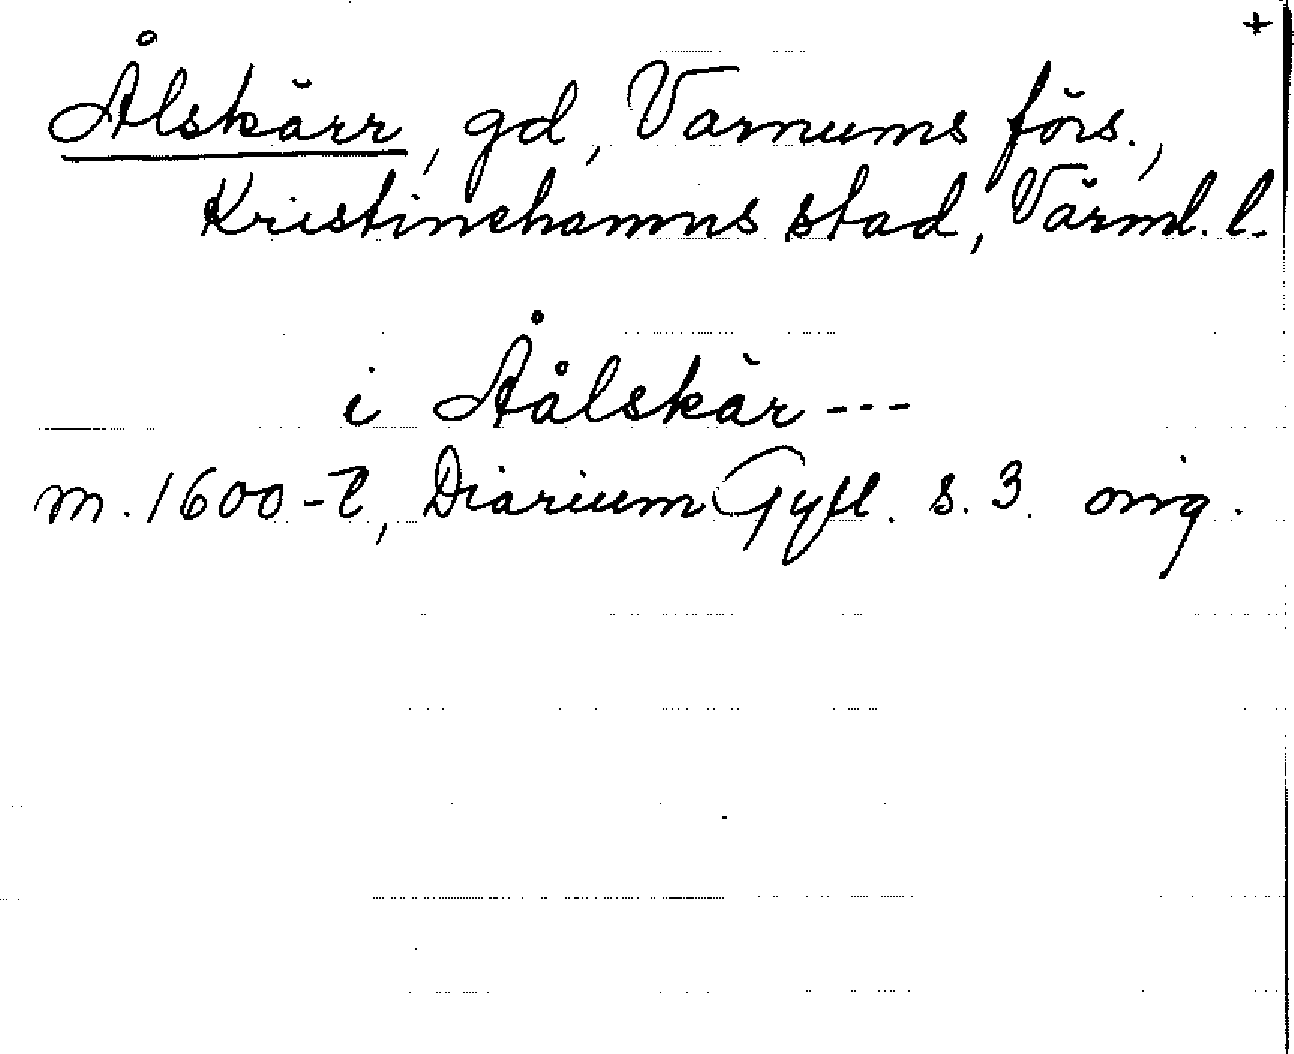 +
Ålskärr, gd, Varnums förs.,
Kristinehamns stad, Värml. l.
i Åålskär---
m. 1600-t, Diarium Gyll. s. 3. orig.